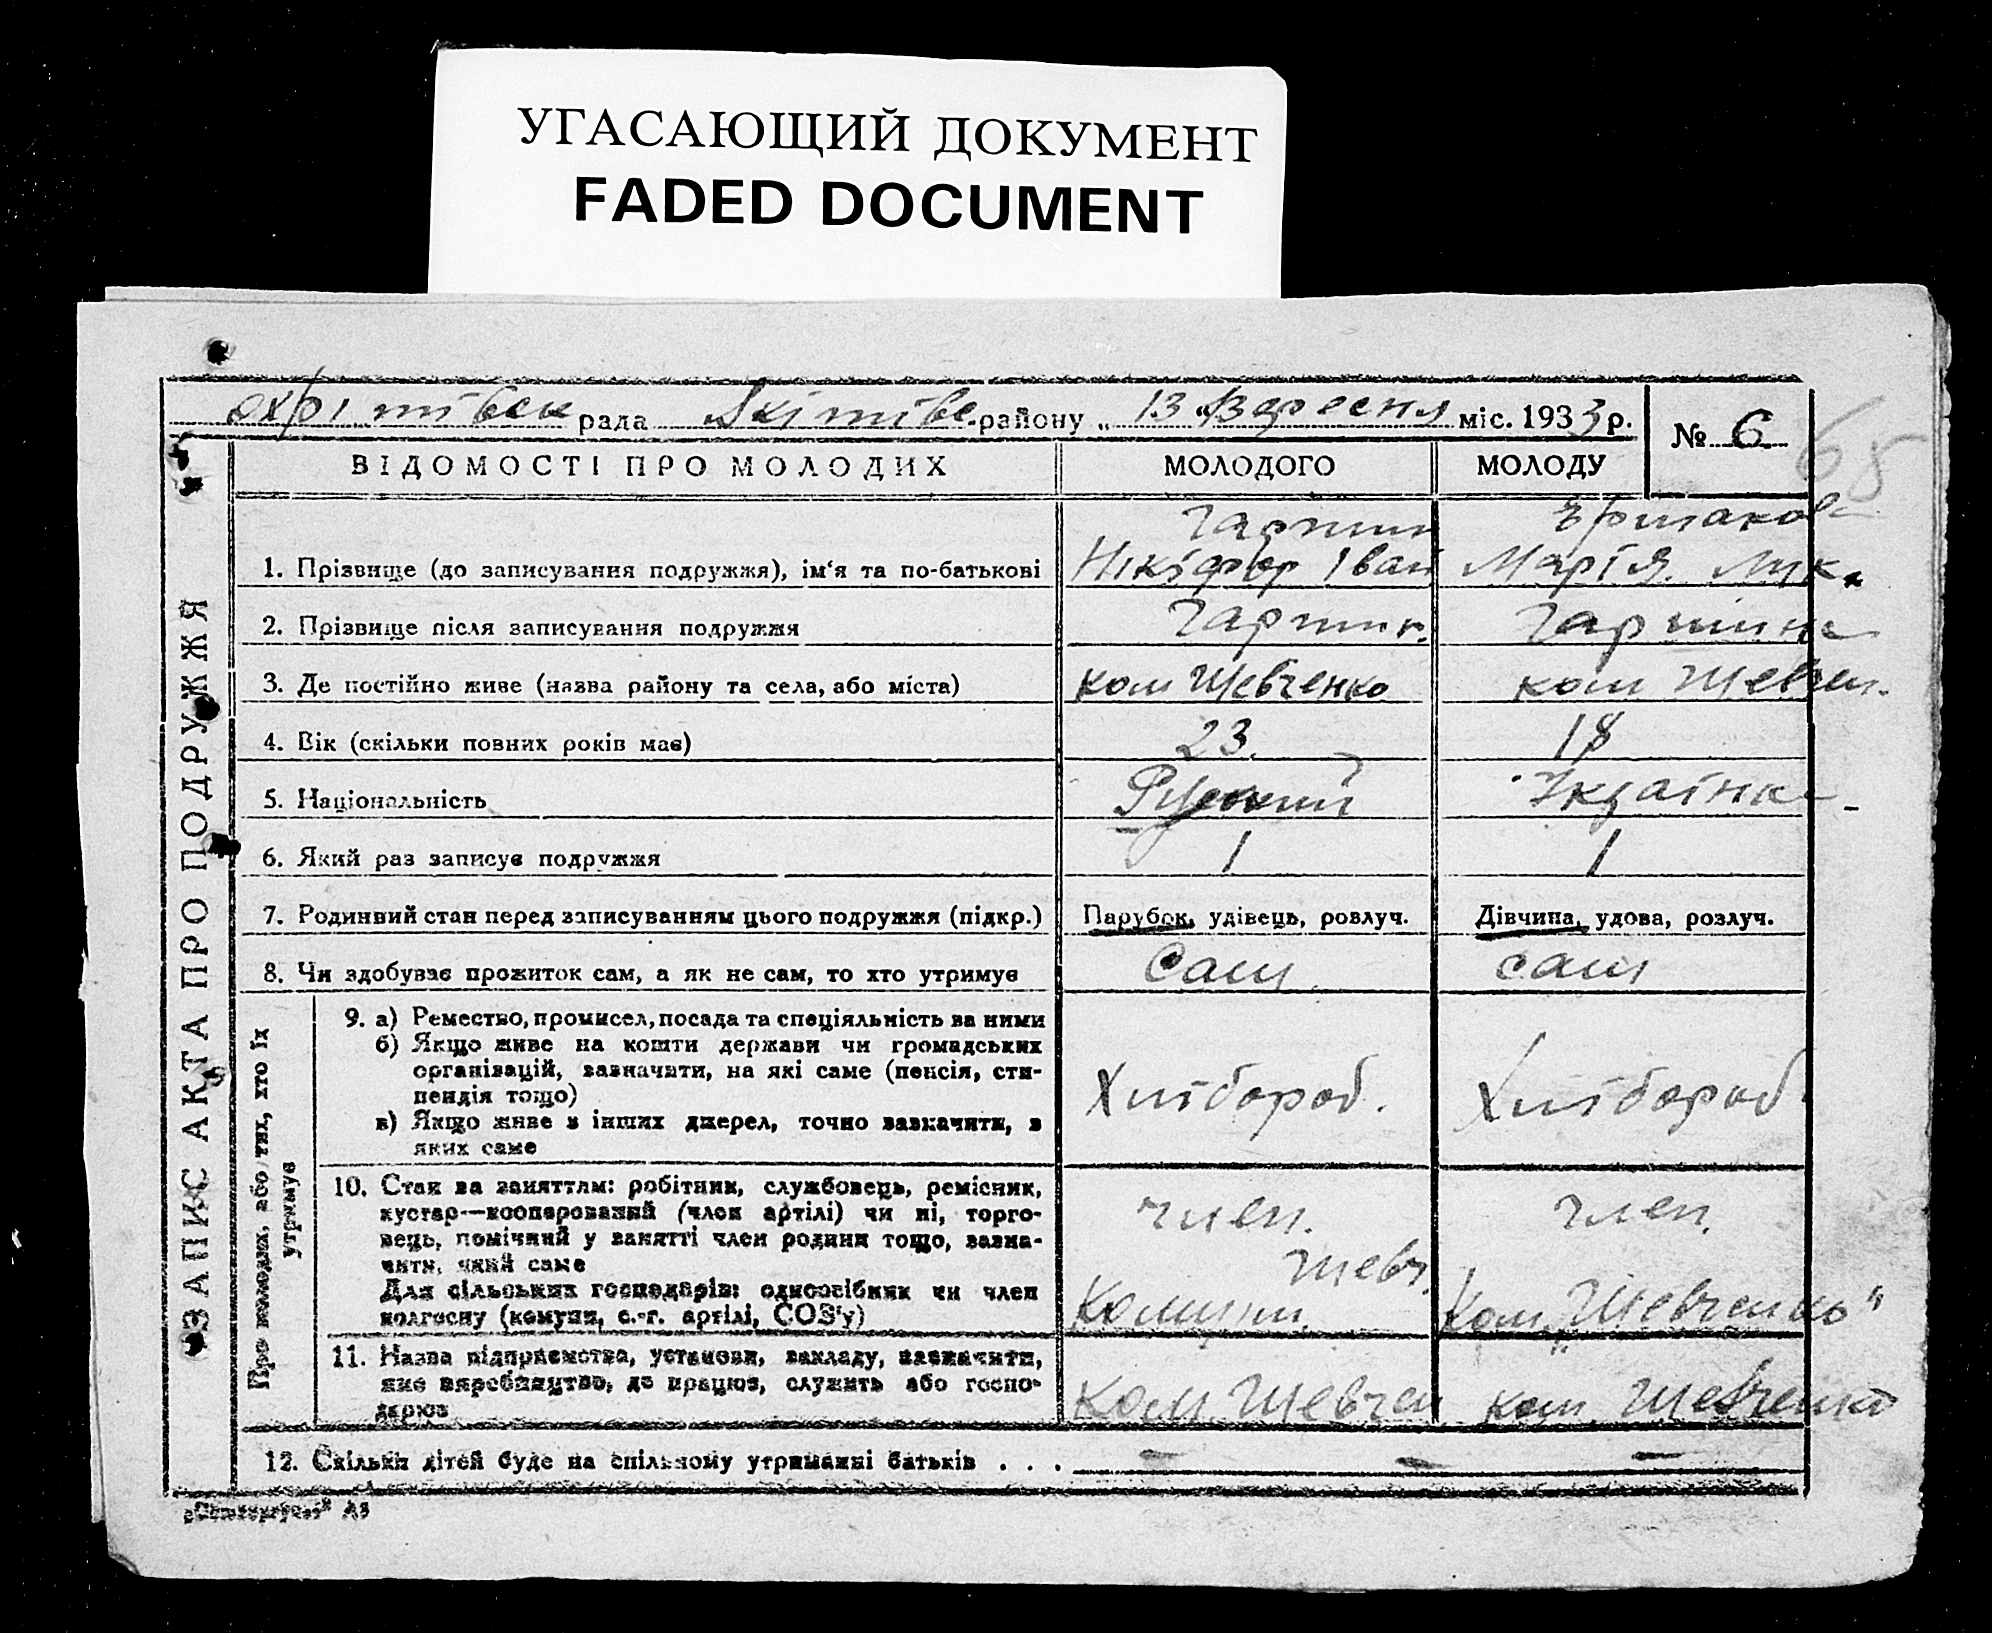 УГАСАЮЩИЙ ДОКУМЕНТ
FADED DOCUMENT
Охрімівськ рада Якімівс. району „13“ Вересня міс. 1933 р.
№ 6
68
ЗАПИС АКТА ПРО ПОДРУЖЖЯ
ВІДОМОСТІ ПРО МОЛОДИХ МОЛОДОГО МОЛОДУ
1. Прізвище (до записування подружжя), ім‘я та по-батькові
Гаршин
Нікіфор Іван
Єршакова
Марія Лук.
2. Прізвище після записування подружжя Гаршин. Гаршина
3. Де постійно живе (назва району та села, або міста) ком Шевченко ком Шевчен.
4. Вік (скільки повних років має) 23. 18
5. Національність Руський Українка
6. Який раз записує подружжя 1 1
7. Родинний стан перед записуванням цього подружжя (підкр.) Парубок, удівець, розлуч. Дівчина, удова, розлуч.
8. Чи здобуває прожиток сам, а як не сам, то хто утримує Сам сам
Про молодих, або тих, хто їх
утримує
9. а) Ремество, промисел, посада та спеціяльність за ними
б) Якщо живе на кошти держави чи громадських
організацій, зазначити, на які саме (пенсія, сти-
пендія тощо)
в) Якщо живе з інших джерел, точно зазначити, з
яких саме
Хлібороб. Хлібороб
10. Стан за заняттям: робітник, службовець, ремісник,
кустар—кооперований (член артілі) чи ні, торго-
вець, помічний у занятті член родини тощо, зазна-
чити, який саме
Для сільських господарів: одноосібник чи член
колгоспу (комуни, с.-г. артілі, СОЗ'у)
член.
Шевч.
Комуни.
член.
Ком „Шевченко“
11. Назва підприємства, установи, закладу, зазначити,
яке виробництво, де працює, служить або госпо-
дарює
Ком. Шевчен ком. Шевченко
12. Скільки дітей буде на спільному утриманні батьків . . . — — —